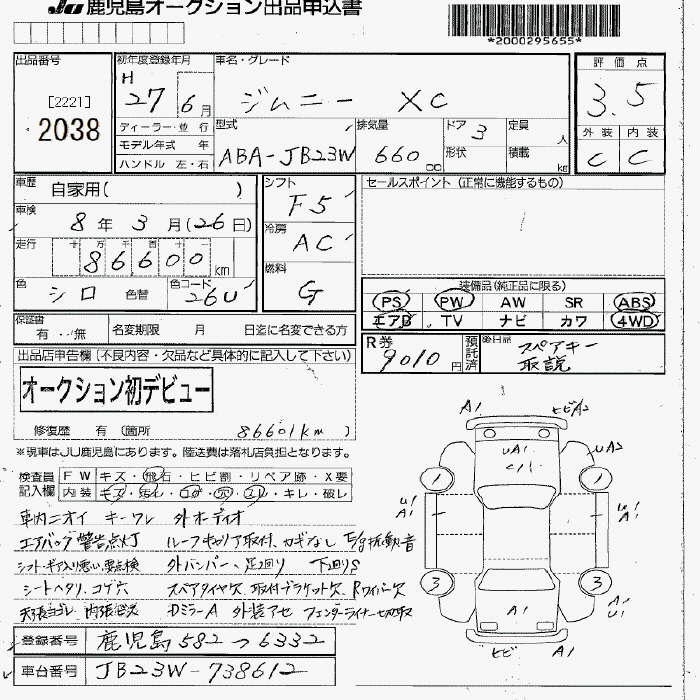 JU 鹿児島オークション出品申込書
*2000295655*
出品番号
[2221]
2038
初年度登録年月
H
27 6月
車名・グレード
ジムニー XC
評価点
3.5
外装 内装
C C
ディーラー・並行
モデル年式 年
ハンドル 左・右
型式
ABA-JB23W
排気量
660 cc
ドア 3
形状
定員 人
積載 kg
車歴 自家用( )
車検
8年 3月(26日)
走行
十 万 千 百 十 一
86600 km
色
シロ 色替
色コード
26U
シフト
F5
冷房
AC
燃料
G
セールスポイント (正常に機能するもの)
装備品(純正品に限る)
PS PW AW SR ABS
エアB TV ナビ カワ 4WD
保証書
有・・無
名変期限 月 日迄に名変できる方
R券
9010円
預託済
後日品
スペアキー
取説
出品店申告欄 (不良内容・欠品など具体的に記入して下さい)
オークション初デビュー
修復歴 有 (箇所 86601km)
※現車はJU鹿児島にあります。陸送費は落札店負担となります。
検査員
記入欄
FW キズ・飛石・ヒビ割・リペア跡・X要
内装 キズ・汚れ・コゲ・穴・スレ・キレ・破レ
車内ニオイ キーワレ 外オーディオ
エアバッグ警告点灯 ルーフキャリア取付、カギなし E/g振動音
シフトギア入り悪い要点検 外バンパー、足回り 下回りS
シートヘタリ、コゲ穴 スペアタイヤ欠、取付ブラケット欠、Rワイパー欠
天張ヨゴレ 内張 DミラーA 外装アセ フェンダーライナー切取
登録番号 鹿児島582っ6332
車台番号 JB23W-738612
A1 ヒビA2
UA1
UA2
1 1
U1
A1
U1
A1
3 3
A1
U1
A1
ヒビ A1